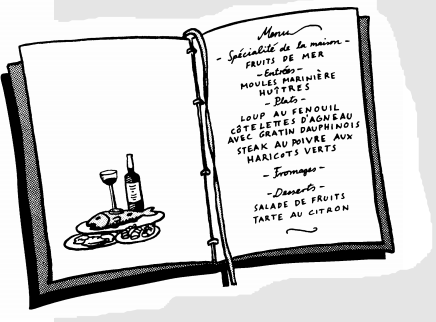 Menu
- Spécialité de la maison -
FRUITS DE MER
- Entrées -
MOULES MARINIÈRE
HUÎTRES
- Plats -
LOUP AU FENOUIL
CÔTELETTES D'AGNEAU
AVEC GRATIN DAUPHINOIS
STEAK AU POIVRE AUX
HARICOTS VERTS
- Fromages -
- Desserts -
SALADE DE FRUITS
TARTE AU CITRON